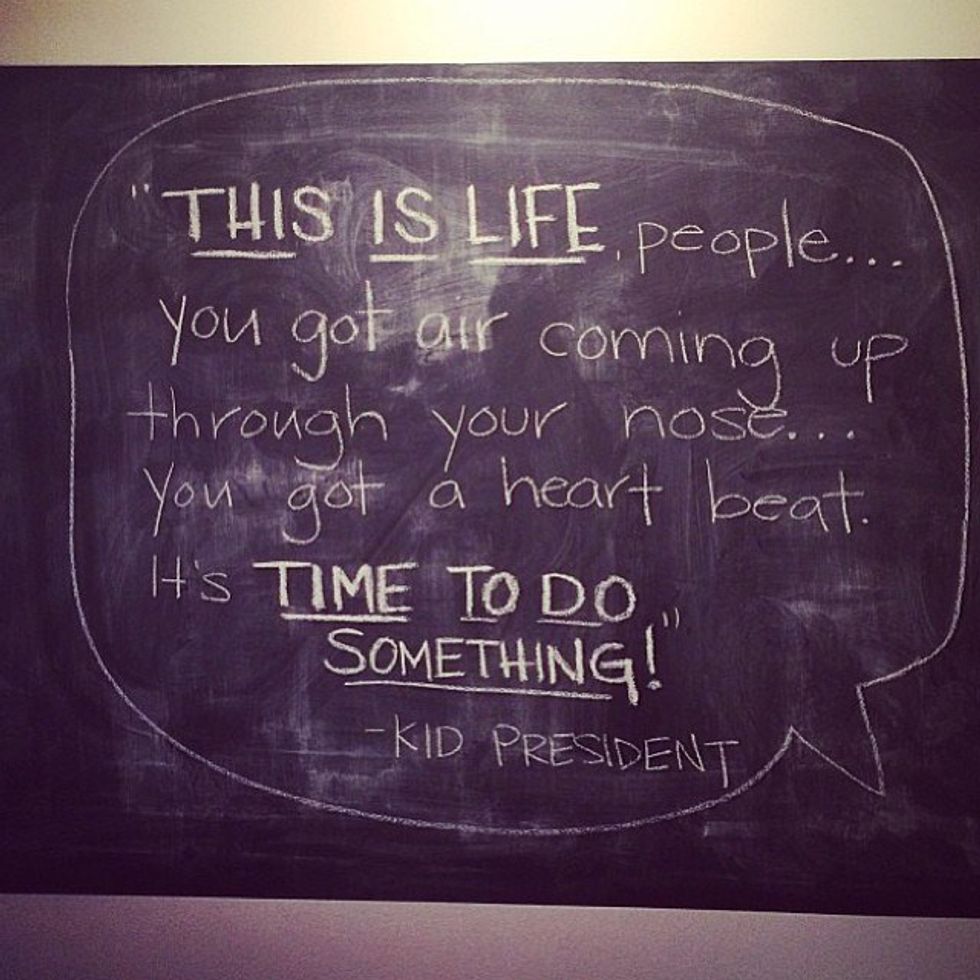 "THIS IS LIFE, people...
you got air coming up
through your nose...
You got a heart beat.
It's TIME TO DO
SOMETHING!"
-KID PRESIDENT